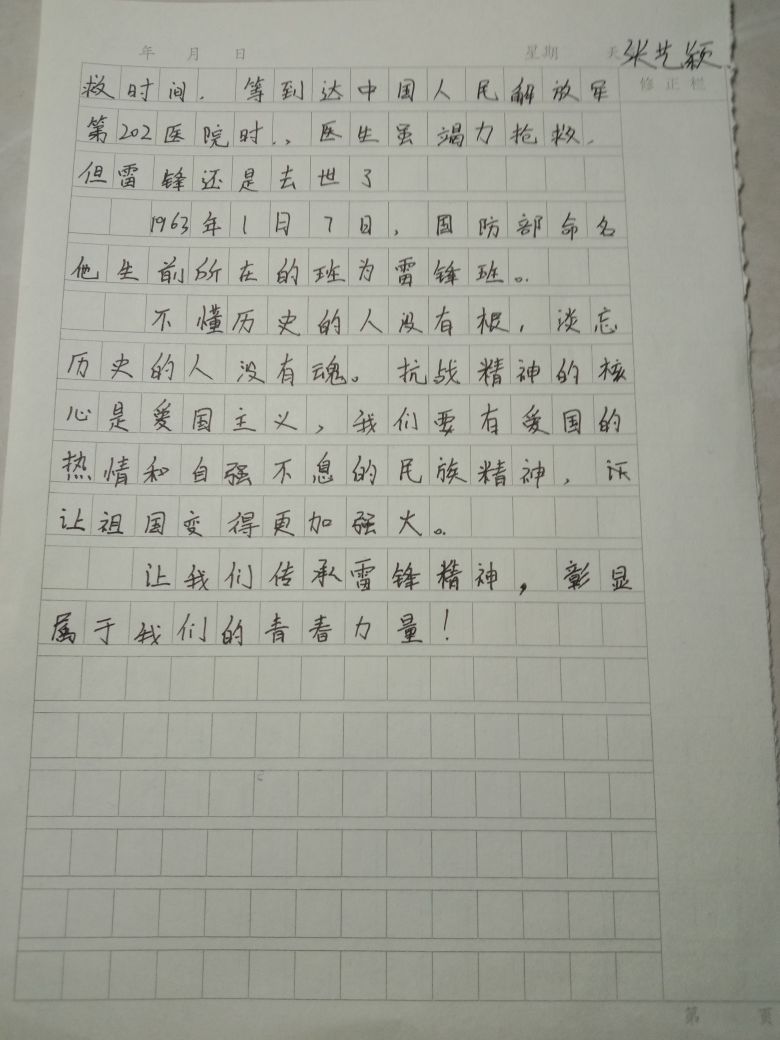 年 月 日 星期 天 张艺颖
修正栏
救时间. 等到达中国人民解放军
第202医院时., 医生虽竭力抢救.
但雷锋还是去世了
1963年1月7日, 国防部命名
他生前所在的班为雷锋班。.
不懂历史的人没有根, 淡忘
历史的人没有魂。抗战精神的核
心是爱国主义, 我们要有爱国的
热情和自强不息的民族精神,
让祖国变得更加强大。
让我们传承雷锋精神, 彰显
属于我们的青春力量!
第 页